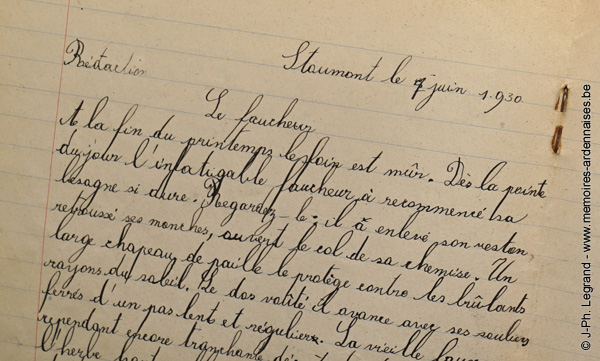 Rédaction
Stoumont le 7 juin 1930
Le faucheur
A la fin du printemps le foin est mûr. Dès la pointe
du jour l'infatigable faucheur à recommencé sa
besogne si dure. Regardez-le. il à enlevé son veston,
retroussé ses manches, ouvert le col de sa chemise. Un
large chapeau de paille le protège contre les brûlants
rayons du soleil. Le dos voûté il avance avec ses souliers
ferrés d'un pas lent et régulier. La vieille faux
cependant encore tranchante
l'herbe
© J-Ph. Legrand - www.memoires-ardennaises.be